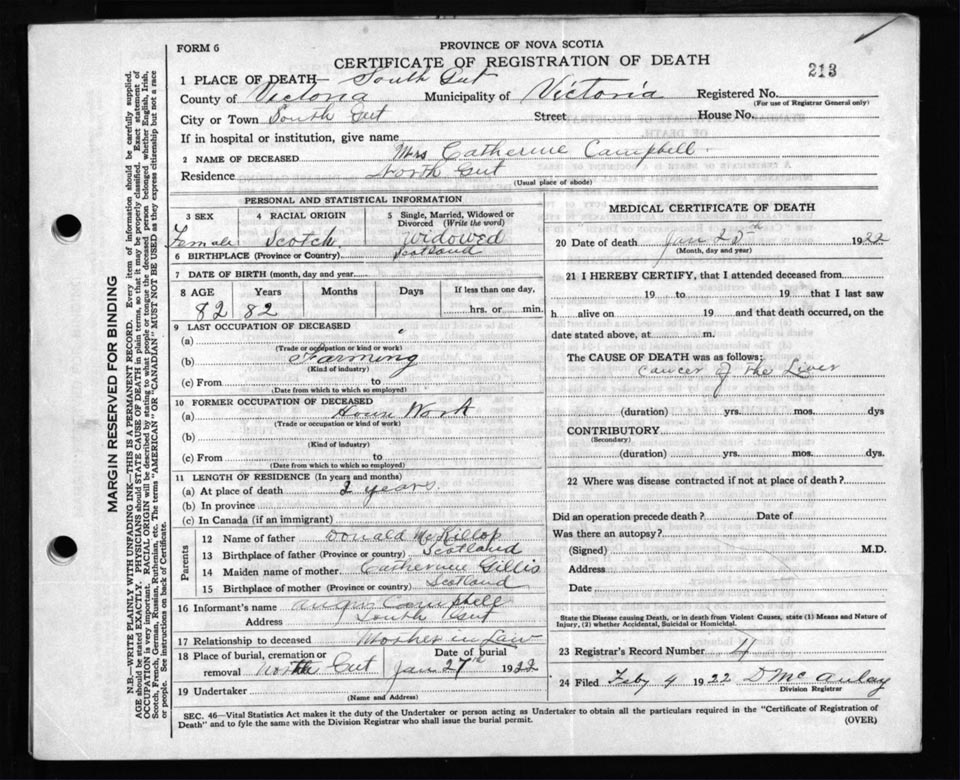 FORM 6
PROVINCE OF NOVA SCOTIA
CERTIFICATE OF REGISTRATION OF DEATH
213
1 PLACE OF DEATH— South Gut
County of Victoria Municipality of Victoria Registered No.
(For use of Registrar General only)
City or Town South Gut Street House No.
If in hospital or institution, give name
2 NAME OF DECEASED Mrs Catherine Campbell
Residence North Gut
(Usual place of abode)
PERSONAL AND STATISTICAL INFORMATION
3 SEX 4 RACIAL ORIGIN 5 Single, Married, Widowed or Divorced (Write the word)
Female Scotch Widowed
6 BIRTHPLACE (Province or Country) Scotland
7 DATE OF BIRTH (month, day and year)
8 AGE Years Months Days If less than one day,
82 82 hrs. or min.
9 LAST OCCUPATION OF DECEASED
(a)
(Trade or occupation or kind of work)
(b) Farming
(Kind of industry)
(c) From to
(Date from which to which so employed)
10 FORMER OCCUPATION OF DECEASED
(a) House Work
(Trade or occupation or kind of work)
(b)
(Kind of industry)
(c) From to
(Date from which to which so employed)
11 LENGTH OF RESIDENCE (In years and months)
(a) At place of death 2 years
(b) In province
(c) In Canada (if an immigrant)
Parents
12 Name of father Donald McKillop
13 Birthplace of father (Province or country) Scotland
14 Maiden name of mother Catherine Gillis
15 Birthplace of mother (Province or country) Scotland
16 Informant's name Campbell
Address South Gut
17 Relationship to deceased Mother in Law
18 Place of burial, cremation or removal North Gut Date of burial Jan 27th 1922
19 Undertaker
(Name and Address)
MEDICAL CERTIFICATE OF DEATH
20 Date of death Jan 25th 1922
(Month, day and year)
21 I HEREBY CERTIFY, that I attended deceased from
19 to 19 that I last saw
h alive on 19 and that death occurred, on the
date stated above, at m.
The CAUSE OF DEATH was as follows:
Cancer of the Liver
(duration) yrs. mos. dys
CONTRIBUTORY
(Secondary)
(duration) yrs. mos. dys.
22 Where was disease contracted if not at place of death?
Did an operation precede death? Date of
Was there an autopsy?
(Signed) M.D.
Address
Date
State the Disease causing Death, or in Death from Violent Causes, state (1) Means and Nature of
Injury, (2) whether Accidental, Suicidal or Homicidal.
23 Registrar's Record Number 4
24 Filed Feby 4 1922 D McAulay
Division Registrar
SEC. 46—Vital Statistics Act makes it the duty of the Undertaker or person acting as Undertaker to obtain all the particulars required in the "Certificate of Registration of
Death" and to fyle the same with the Division Registrar who shall issue the burial permit. (OVER)
MARGIN RESERVED FOR BINDING
N.B.—WRITE PLAINLY WITH UNFADING INK—THIS IS A PERMANENT RECORD. Every item of information should be carefully supplied.
AGE should be stated EXACTLY. PHYSICIANS should STATE CAUSE OF DEATH in plain terms, so that it may be properly classified. Exact statement of
OCCUPATION is very important. RACIAL ORIGIN will be described by stating to what people or tongue the deceased person belonged whether English, Irish,
Scotch, French, German, Russian, Ruthenian, etc. The terms "AMERICAN" OR "CANADIAN" MUST NOT BE USED as they express citizenship but not a race
or people. See instructions on back of Certificate.